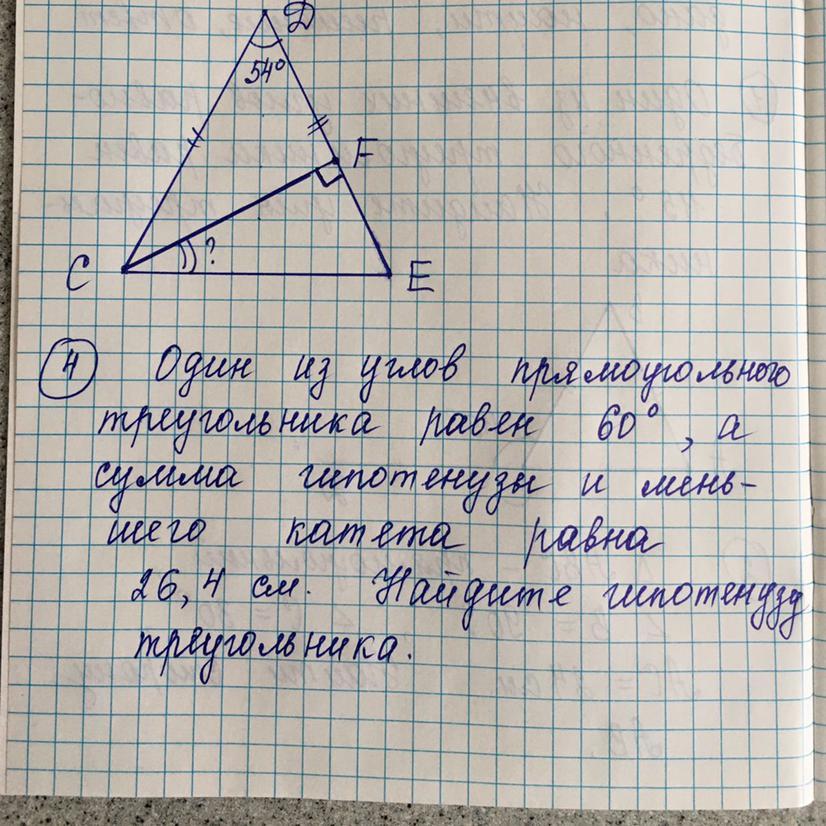 D
54°
F
?
C
E
4 Один из углов прямоугольного
треугольника равен 60°, а
сумма гипотенузы и мень-
шего катета равна
26,4 см. Найдите гипотенузу
треугольника.